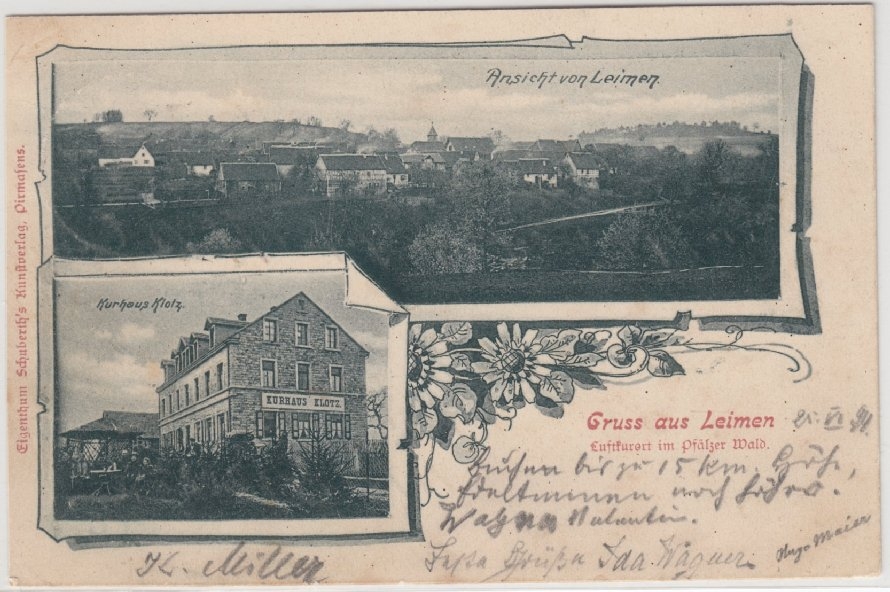 Ansicht von Leimen.
Kurhaus Klotz.
KURHAUS KLOTZ.
Eigenthum Schuberth's Kunstverlag, Pirmasens.
Gruss aus Leimen
Luftkurort im Pfälzer Wald.
bis zu 15 km. Höhe,
noch höher.
Wagner Valentin.
K. Miller
Grüße Ida Wagner.
Hugo Maier